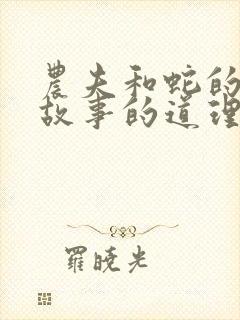 農夫和蛇的
故事的道理
羅曉光